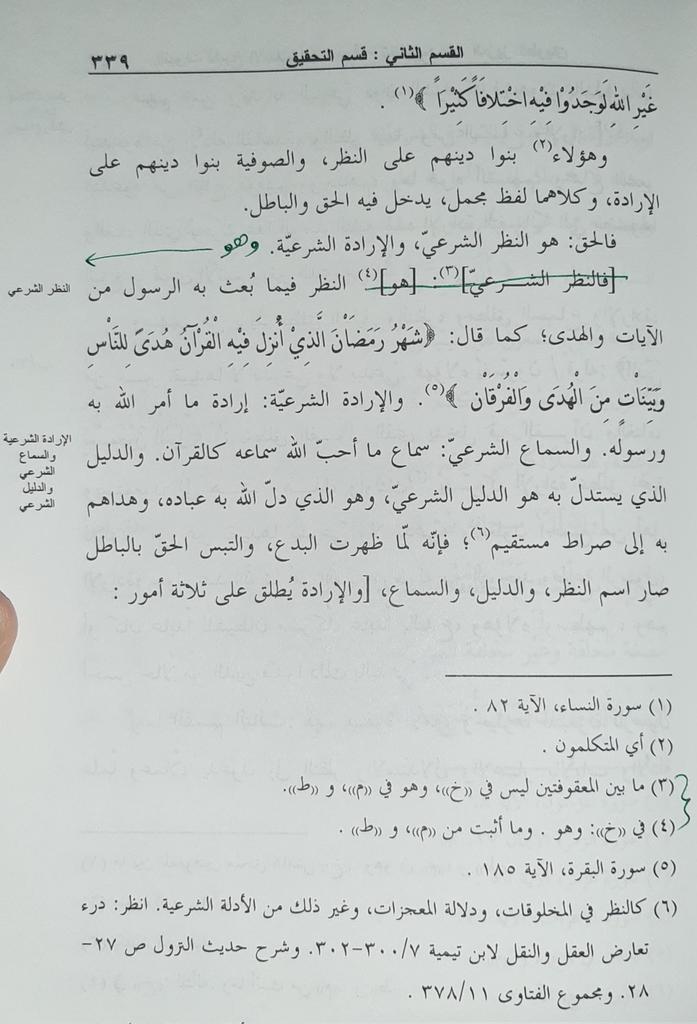 القسم الثاني : قسم التحقيق ٣٣٩
غَيْرِ اللهِ لَوَجَدُوْا فِيْهِ اخْتِلافَاً كَثِيْرَاً ﴾(١) .
وهؤلاء(٢) بنوا دينهم على النظر، والصوفية بنوا دينهم على
الإرادة، وكلاهما لفظ مجمل، يدخل فيه الحق والباطل.
فالحق: هو النظر الشرعيّ، والإرادة الشرعيّة. وهو
[فالنظر الشرعيّ](٣): [هو](٤) النظر فيما بُعث به الرسول من
النظر الشرعي
الآيات والهدى؛ كما قال: ﴿شَهْرُ رَمَضَانَ الَّذِيْ أُنْزِلَ فِيْهِ الْقُرْآنُ هُدَىً لِلنَّاسِ
وَبَيِّنَاتٍ مِنَ الْهُدَى وَالْفُرْقَان ﴾(٥). والإرادة الشرعيّة: إرادة ما أمر الله به
ورسوله. والسماع الشرعيّ: سماع ما أحبّ الله سماعه كالقرآن. والدليل
الإرادة الشرعية
والسماع
الشرعي
والدليل
الشرعي
الذي يستدلّ به هو الدليل الشرعيّ، وهو الذي دلّ الله به عباده، وهداهم
به إلى صراط مستقيم(٦)؛ فإنّه لمّا ظهرت البدع، والتبس الحقّ بالباطل
صار اسم النظر، والدليل، والسماع، [والإرادة يُطلق على ثلاثة أمور :
(١) سورة النساء، الآية ٨٢ .
(٢) أي المتكلمون .
(٣) ما بين المعقوفتين ليس في ((خ))، وهو في ((م))، و ((ط)).
(٤) في ((خ)): وهو . وما أثبت من ((م))، و ((ط)) .
(٥) سورة البقرة، الآية ١٨٥ .
(٦) كالنظر في المخلوقات، ودلالة المعجزات، وغير ذلك من الأدلة الشرعية. انظر: درء
تعارض العقل والنقل لابن تيمية ٣٠٠/٧-٣٠٢. وشرح حديث النزول ص ٢٧-
٢٨. ومجموع الفتاوى ٣٧٨/١١ .